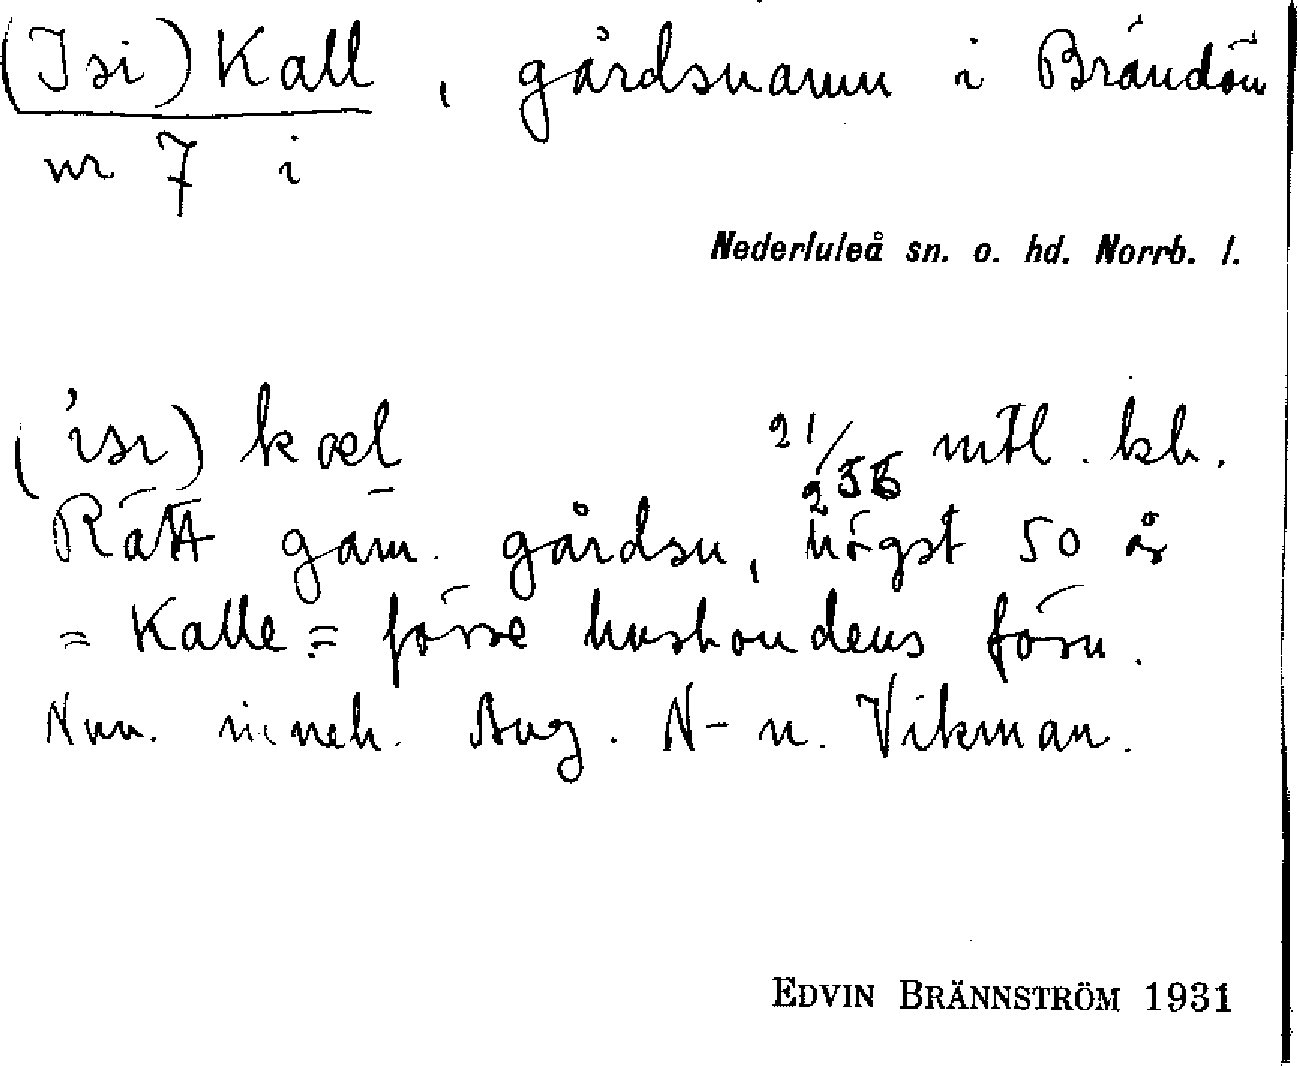 (Isi) Kall, gårdsnamn i Brändön
nr 7 i
Nederluleå sn. o. hd. Norrb. l.
('isi) kæl 21/256 mtl. kh.
Rätt gam. gårdsn, högst 50 år
= Kalle = förre husbondens förn.
Nuv. inneh. Aug. N-n. Vikman.
EDVIN BRÄNNSTRÖM 1931